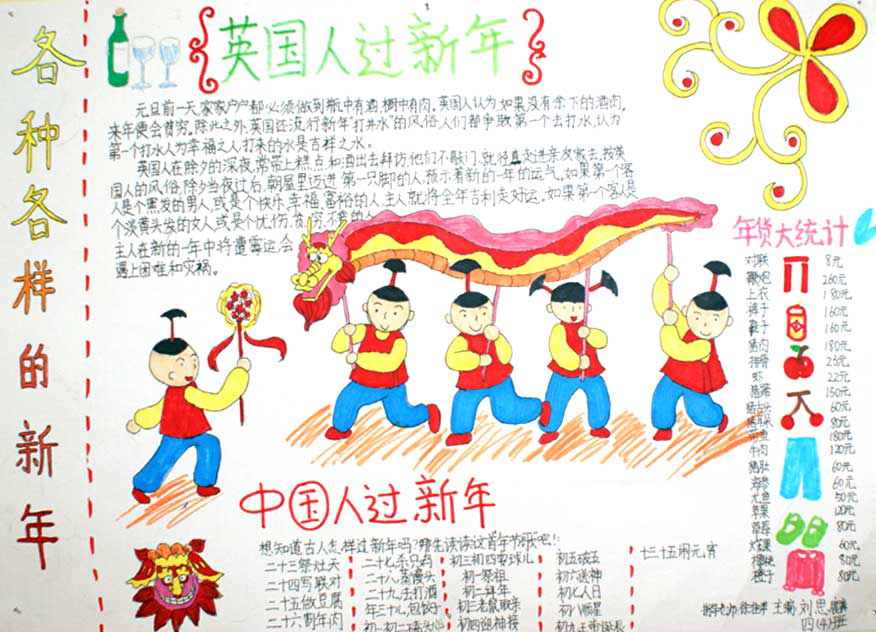 各种各样的新年
英国人过新年
元旦前一天,家家户户都必须做到瓶中有酒,橱中有肉。英国人认为,如果没有余下的酒肉,
来年便会贫穷。除此之外,英国还流行新年“打井水”的风俗,人们都争取第一个去打水,认为
第一个打水人为幸福之人,打来的水是吉祥之水。
英国人在除夕的深夜,常带上糕点和酒出去拜访,他们不敲门,就径直走进亲友家去。按英
国人的风俗,除夕当夜过后,朝屋里迈进第一只脚的人,预示着新的一年的运气。如果第一个客
人是个黑发的男人,或是个快乐、幸福、富裕的人,主人就将全年吉利走好运。如果第一个客人是
个淡黄头发的女人,或是个忧伤、贫穷、不幸的人
主人在新的一年中将遭霉运会
遇上困难和灾祸。
年货大统计
对联 8元
鞭炮 260元
上衣 180元
裤子 160元
鞋子 160元
猪肉 180元
排骨 23元
虾 22元
150元
60元
80元
180元
牛肉 120元
猪肚 60元
60元
尤鱼 50元
苹果 120元
草莓 80元
60元
80元
橙子 80元
中国人过新年
想知道古人怎样过新年吗?那先读读这首年节歌吧!!
二十三祭灶天
二十四写联对
二十五做豆腐
二十六割年肉
二十七杀只鸡
二十八蒸馒头
二十九去打酒
年三十儿包饺
初一初二磕头
初三初四耍球儿
初一祭祖
初二拜年
初三老鼠取亲
初四迎神接
初五破五
初六送神
初七人日
初八顺星
初九玉帝诞辰
七三十五闹元宵
主编 刘思
四(4)班